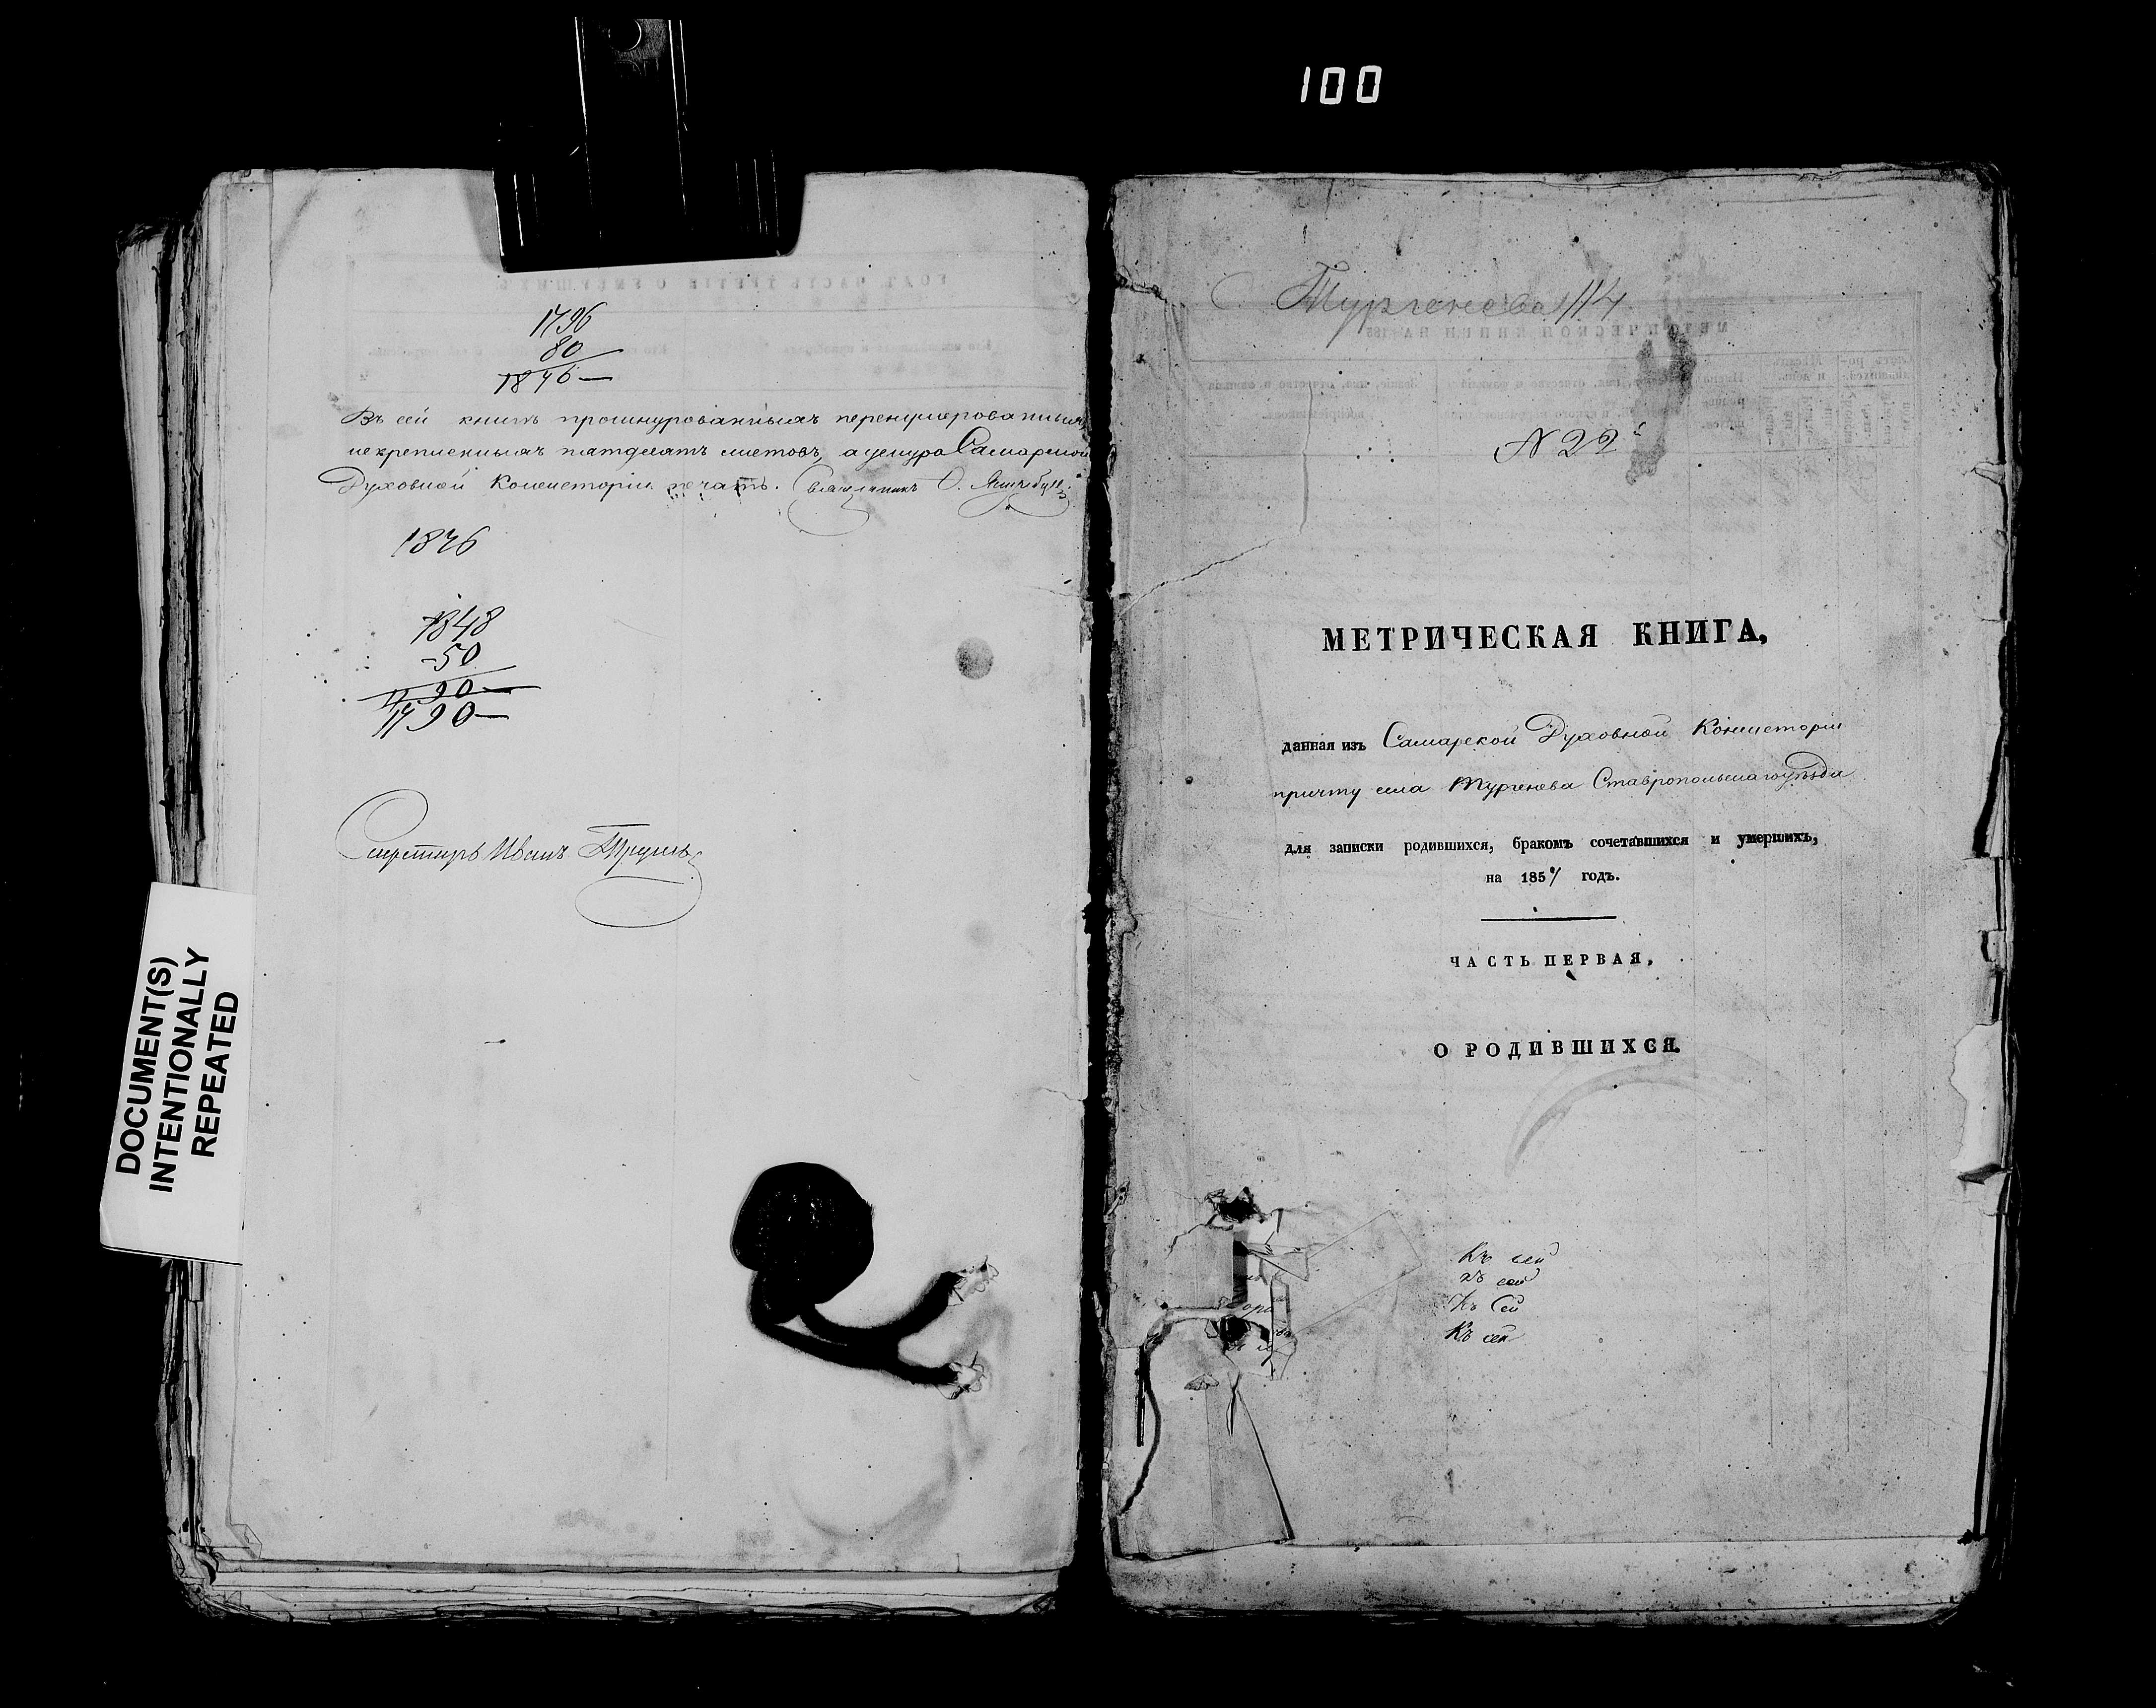 100
1796
80
1876—
Въ сей книгѣ прошнурованныхъ перенумерованныхъ
и скрепленныхъ пятдесятъ листовъ, а у шнура Самарской
Духовной Консисторіи печать. Священникъ
1876
1848
-50
1790—
1790—
Секретарь Иванъ
DOCUMENT(S)
INTENTIONALLY
REPEATED
Тургенева
N 22
МЕТРИЧЕСКАЯ КНИГА,
данная изъ Самарской Духовной Консисторіи
причту села Тургенева Ставропольскаго уѣзда
для записки родившихся, бракомъ сочетавшихся и умершихъ,
на 185 годъ.
ЧАСТЬ ПЕРВАЯ,
О РОДИВШИХСЯ.
Къ сей
сей
Къ Сей
Къ сей